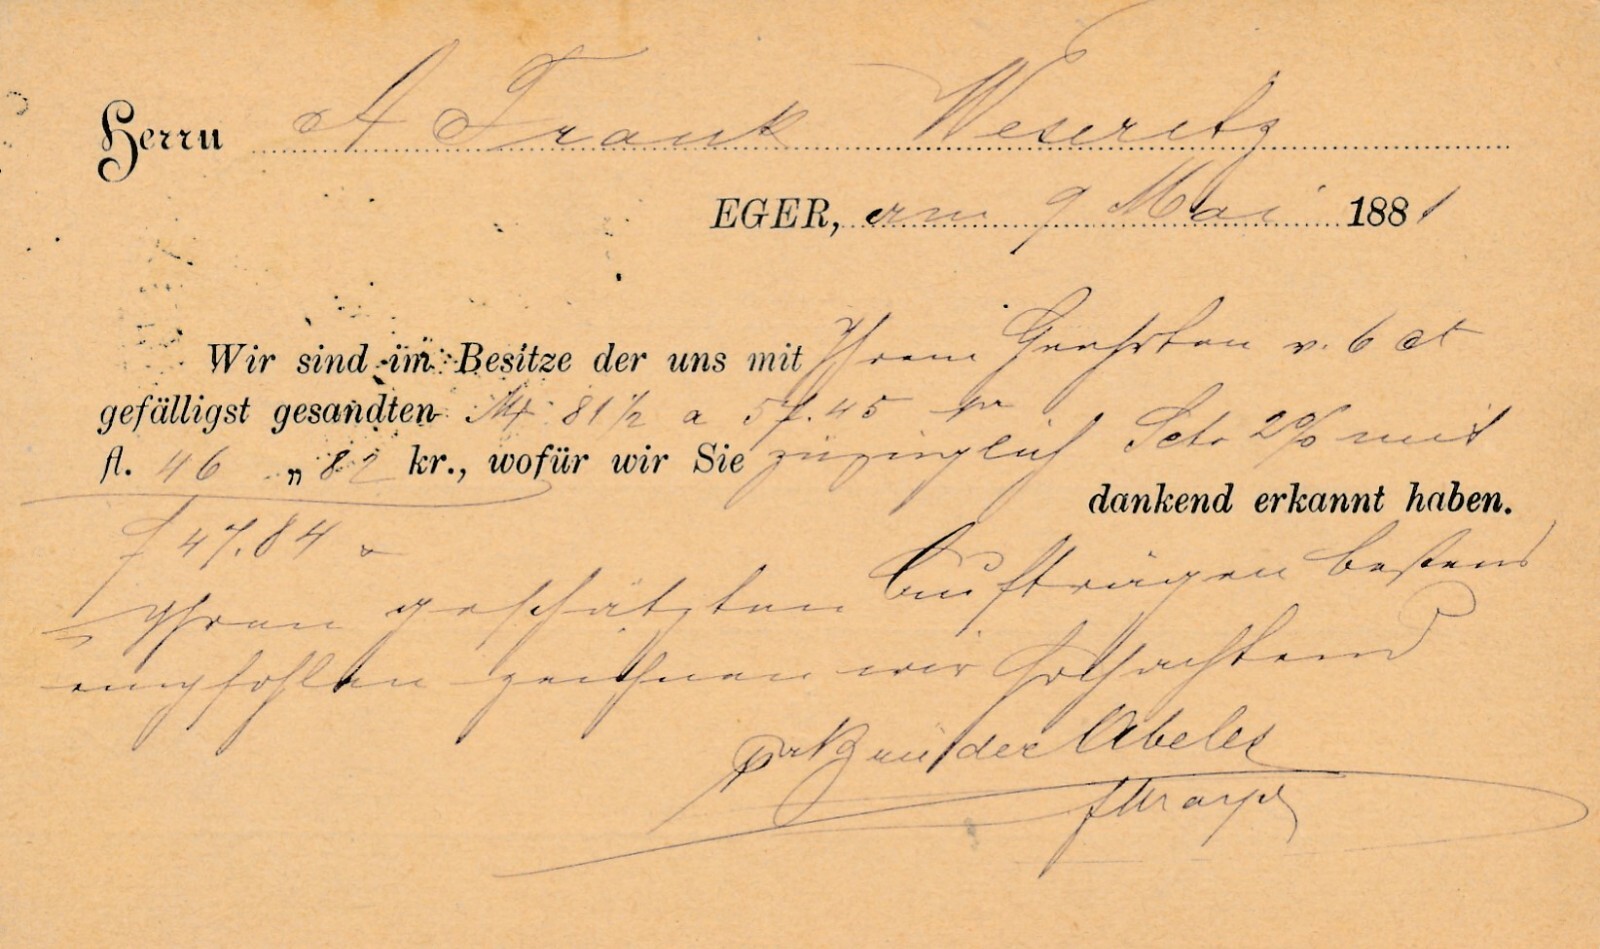 Herrn A Frank Weseritz
EGER, am 9 Mai 1881
Wir sind im Besitze der uns mit Ihrem Geehrten v. 6 ct
gefälligst gesandten Mk 81 1/2 a 57.45 pr
fl. 46 „ 82 kr., wofür wir Sie zuzüglich Scto 2% mit
dankend erkannt haben.
f 47.84
Ihren geschätzten Aufträgen bestens
empfohlen zeichnen wir hochachtend
Brüder Abeles